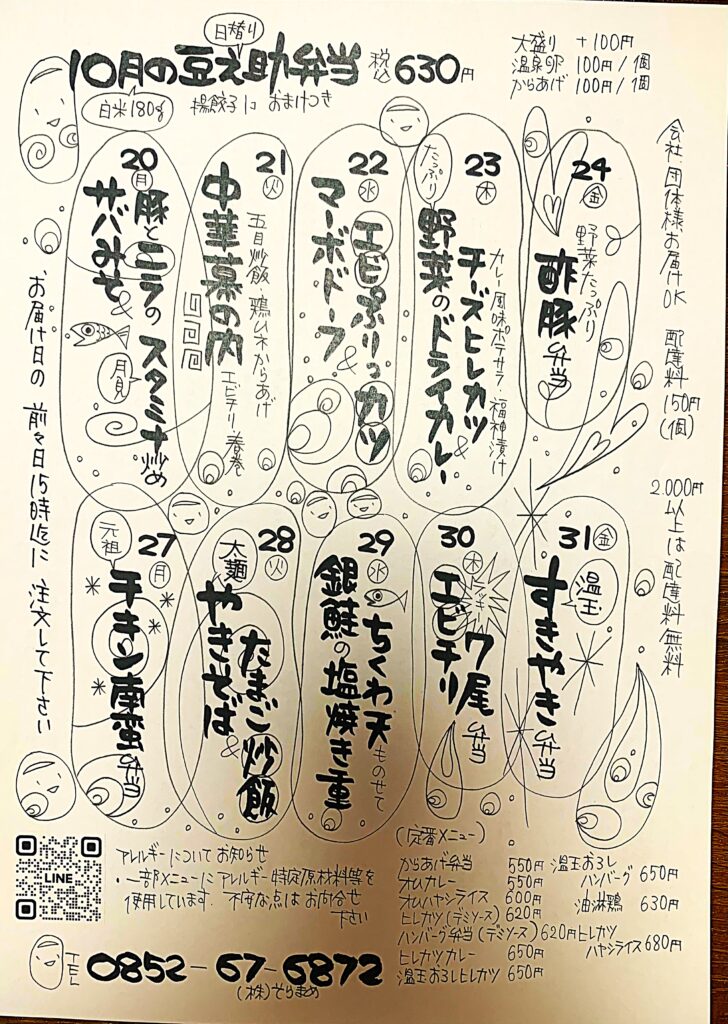 日替り
10月の豆え助弁当 税込630円
白米180g
揚餃子におまけつき
大盛り +100円
温泉卵 100円/1個
からあげ 100円/1個
20 月
豚とニラのスタミナ炒め
&
サバみそ
月見
21 火
中華幕の内
五目炒飯 鶏ムネからあげ
エビチリ 春巻
22 水
エビぷりっカツ
&
マーボドーフ
23 木
チーズヒレカツ
&
たっぷり
野菜のドライカレー
カレー風味ポテサラ・福神漬け
24 金
野菜たっぷり
酢豚の弁当
会社・団体様お届けOK 配達料150円(1個)
2,000円以上は配達料無料
お届け日の前々日15時迄に注文して下さい
27 月
元祖
チキン南蛮弁当
28 火
たまご炒飯
&
太麺
やきそば
29 水
ちくわ天ものせて
銀鮭の塩焼き重
30 木
7尾の弁当
エビチリ
31 金
温玉
すきやき弁当
LINE
アレルギーについてお知らせ
・一部メニューにアレルギー特定原材料等を
使用しています。不度な点はお問合せ
下さい
TEL 0852-67-6872
(株)そらまめ
(定番メニュー)
からあげ弁当 550円
オムカレー 550円
オムハヤシライス 600円
ヒレカツ(デミソース) 620円
ハンバーグ弁当(デミソース) 620円
ヒレカツカレー 650円
温玉おろしヒレカツ 650円
温玉おろし
ハンバーグ 650円
油淋鶏 630円
ヒレカツ
ハヤシライス 680円